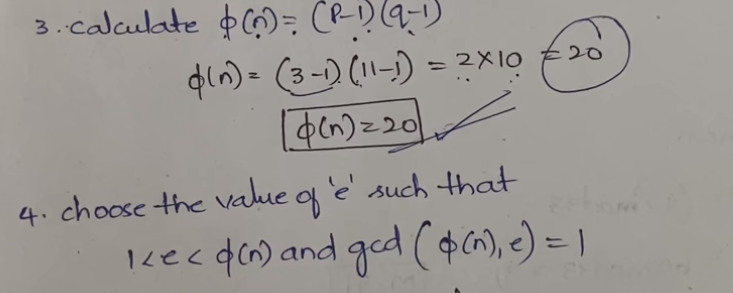 3. calculate ϕ(n) = (P-1)(q-1)
ϕ(n) = (3-1)(11-1) = 2×10 = 20
ϕ(n) = 20
4. choose the value of 'e' such that
1<e< ϕ(n) and gcd (ϕ(n), e) = 1